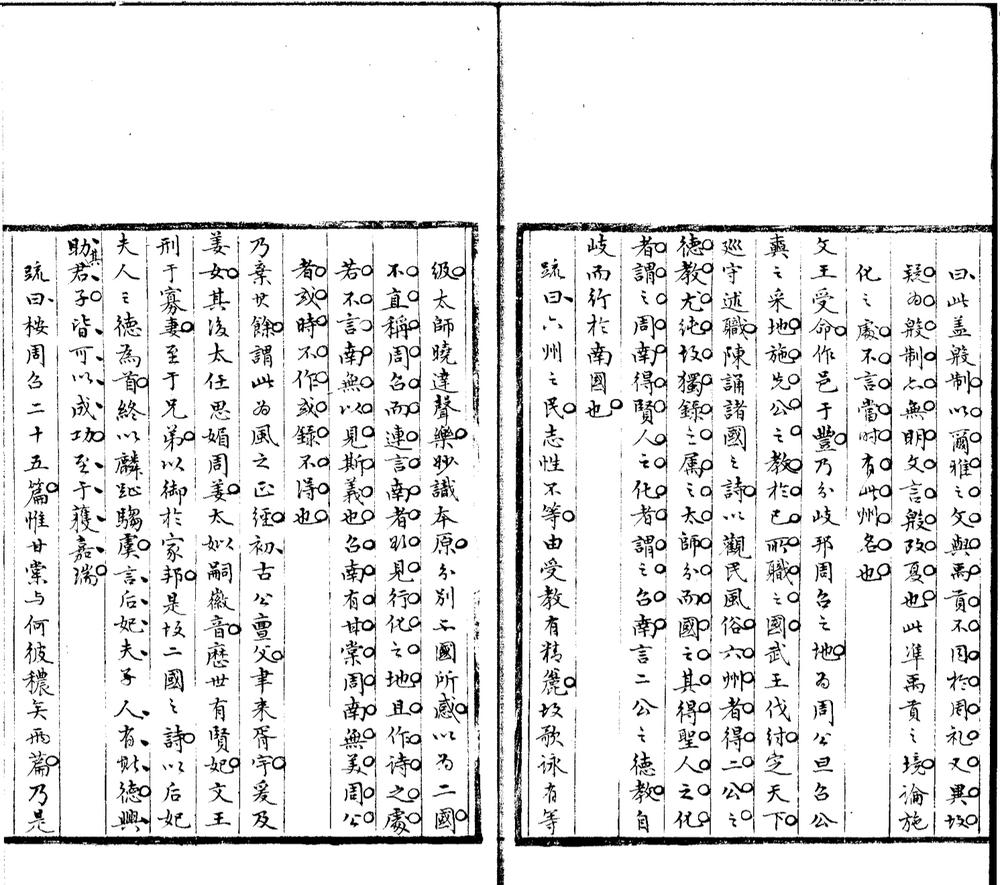 曰此盖殷制以爾雅之文與禹貢不同於周礼又異故
疑为殷制亦無明文言殷改夏也此準禹貢之境論施
化之處不言當时有此州名也
文王受命作邑于豐乃分岐邦周召之地为周公旦召公
奭之采地施先公之教於己所職之國武王伐紂定天下
巡守述職陳誦諸國之詩以觀民風俗六州者得二公之
德教尤純故獨録之属之太師分而國之其得聖人之化
者謂之周南得賢人之化者謂之召南言二公之德教自
岐而行於南國也
疏曰六州之民志性不等由受教有精麄故歌詠有等
级太師曉達聲樂妙識本原分别二國所感以为二國
不直稱周召而連言南者欲見行化之地且作诗之處
若不言南無以見斯義也召南有甘棠周南無美周公
者或時不作或録不得也
乃棄其餘謂此为風之正經初古公亶父聿来胥宇爰及
姜女其後太任思媚周姜太姒嗣徽音歷世有賢妃文王
刑于寡妻至于兄弟以御於家邦是故二國之詩以后妃
夫人之德為首終以麟趾騶虞言后妃夫人有斯德興
助其君子皆可以成功至于獲嘉瑞
疏曰桉周召二十五篇惟甘棠与何彼穠矣两篇乃是